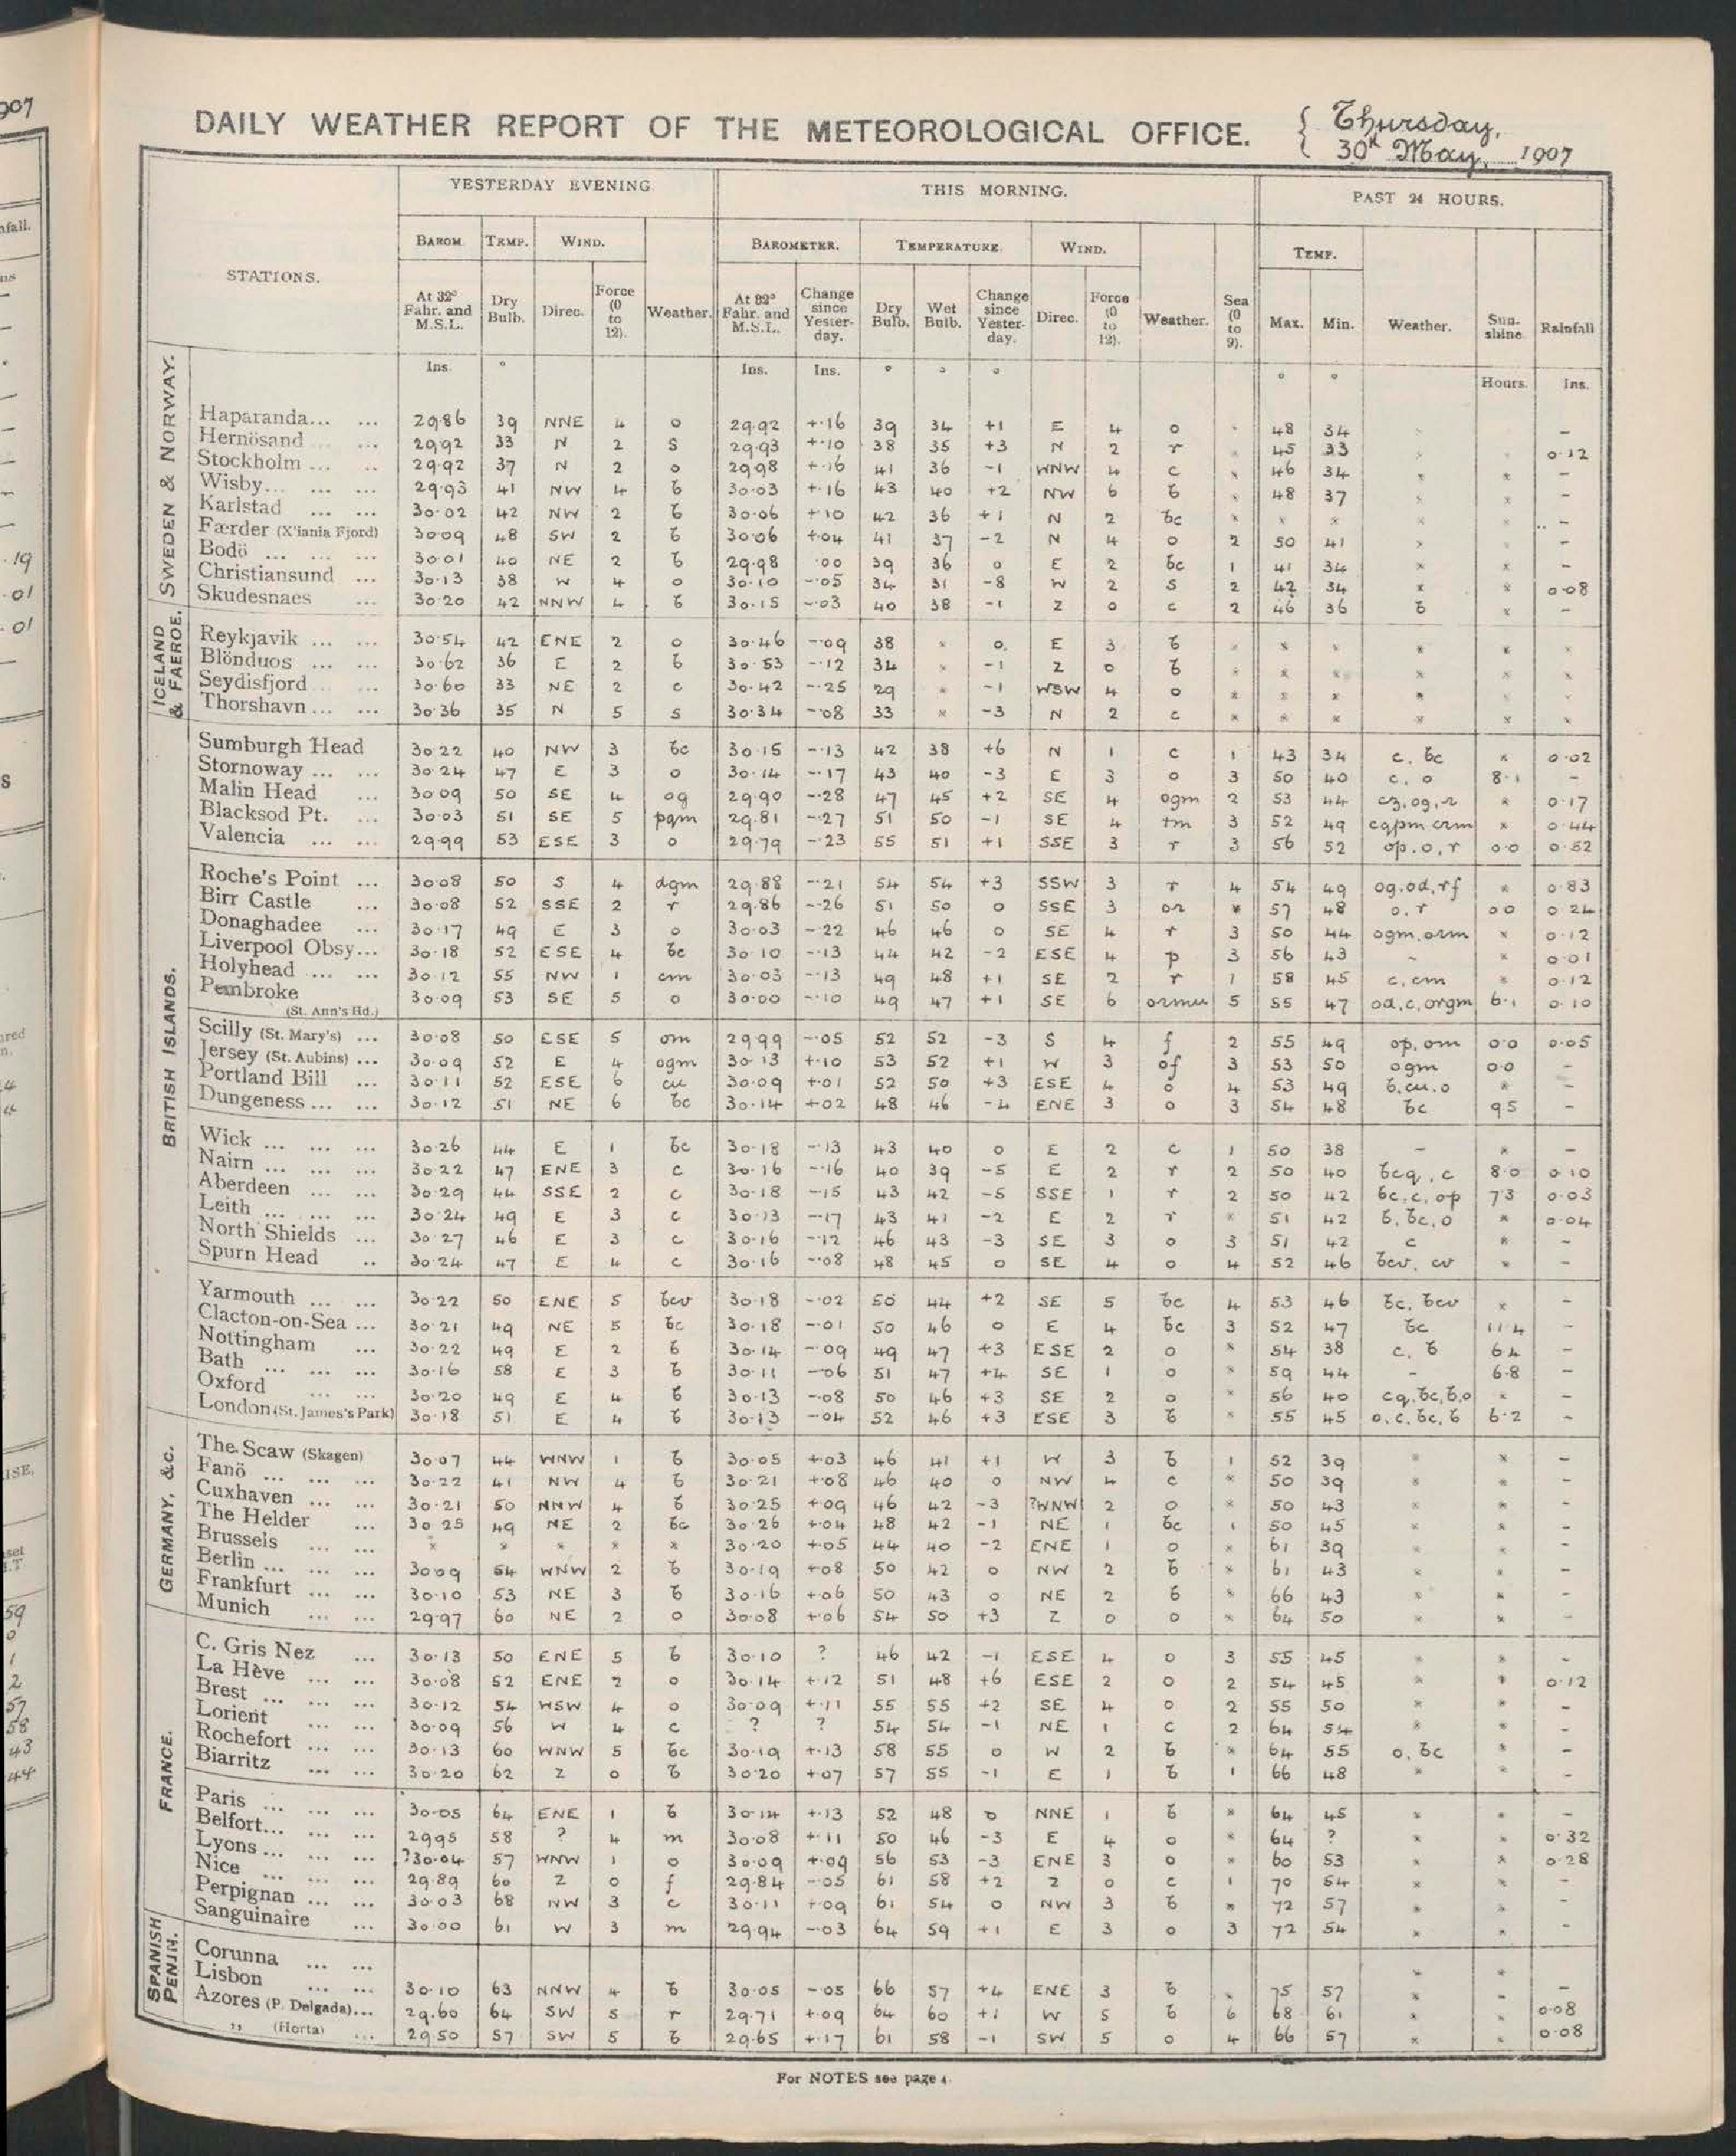 DAILY WEATHER REPORT OF THE METEOROLOGICAL OFFICE. { Thursday, 30th May, 1907
YESTERDAY EVENING THIS MORNING. PAST 24 HOURS.
STATIONS. BAROM TEMP. WIND. BAROMETER. TEMPERATURE. WIND. TEMP.
At 32° Fahr. and M.S.L. Dry Bulb. Direc. Force (0 to 12). Weather. At 32° Fahr. and M.S.L. Change since Yester-day. Dry Bulb. Wet Bulb. Change since Yester-day. Direc. Force (0 to 12). Weather. Sea (0 to 9). Max. Min. Weather. Sun-shine Rainfall
Ins. ° Ins. Ins. ° ° ° ° ° Hours. Ins.
SWEDEN & NORWAY.
Haparanda... ... 29.86 39 NNE 4 o 29.92 +.16 39 34 +1 E 4 o 48 34 -
Hernösand ... 29.92 33 N 2 s 29.93 +.10 38 35 +3 N 2 r 45 33 0.12
Stockholm ... .. 29.92 37 N 2 o 29.98 +.16 41 36 -1 WNW 4 c 46 34 -
Wisby... ... ... 29.93 41 NW 4 b 30.03 +.16 43 40 +2 NW 6 b 48 37 -
Karlstad ... ... 30.02 42 NW 2 b 30.06 +.10 42 36 +1 N 2 bc × × × -
Færder (X'iania Fjord) 30.09 48 SW 2 b 30.06 +.04 41 37 -2 N 4 o 2 50 41 -
Bodö ... ... ... 30.01 40 NE 2 b 29.98 .00 39 36 0 E 2 bc 1 41 34 × × -
Christiansund ... 30.13 38 W 4 o 30.10 -.05 34 31 -8 W 2 s 2 42 34 × × 0.08
Skudesnaes ... 30.20 42 NNW 4 b 30.15 -.03 40 38 -1 Z 0 c 2 46 36 b × -
ICELAND & FAEROE.
Reykjavik ... ... 30.54 42 ENE 2 o 30.46 -.09 38 × 0. E 3 b × × × × × ×
Blönduos ... ... 30.62 36 E 2 b 30.53 -.12 34 × -1 Z 0 b × × × × × ×
Seydisfjord ... 30.60 33 NE 2 c 30.42 -.25 29 × -1 WSW 4 o × × × × × ×
Thorshavn ... ... 30.36 35 N 5 s 30.34 -.08 33 × -3 N 2 c × × × × × ×
BRITISH ISLANDS.
Sumburgh Head 30.22 40 NW 3 bc 30.15 -.13 42 38 +6 N 1 c 1 43 34 c. bc × 0.02
Stornoway ... ... 30.24 47 E 3 o 30.14 -.17 43 40 -3 E 3 o 3 50 40 c. o 8.1 -
Malin Head ... 30.09 50 SE 4 og 29.90 -.28 47 45 +2 SE 4 ogm 2 53 44 cz,og,r × 0.17
Blacksod Pt. ... 30.03 51 SE 5 pqm 29.81 -.27 51 50 -1 SE 4 tm 3 52 49 cqpm crm × 0.44
Valencia ... ... 29.99 53 ESE 3 o 29.79 -.23 55 51 +1 SSE 3 r 3 56 52 op.o,r 0.0 0.52
Roche's Point ... 30.08 50 S 4 dgm 29.88 -.21 54 54 +3 SSW 3 r 4 54 49 og.od,rf × 0.83
Birr Castle ... 30.08 52 SSE 2 r 29.86 -.26 51 50 0 SSE 3 or × 57 48 o. r 0.0 0.24
Donaghadee ... 30.17 49 E 3 o 30.03 -.22 46 46 0 SE 4 r 3 50 44 ogm,orm × 0.12
Liverpool Obsy... 30.18 52 ESE 4 bc 30.10 -.13 44 42 -2 ESE 4 p 3 56 43 - × 0.01
Holyhead ... ... 30.12 55 NW 1 cm 30.03 -.13 49 48 +1 SE 2 r 1 58 45 c, cm × 0.12
Pembroke (St. Ann's Hd.) 30.09 53 SE 5 o 30.00 -.10 49 47 +1 SE 6 ormu 5 55 47 od,c,orgm 6.1 0.10
Scilly (St. Mary's) ... 30.08 50 ESE 5 om 29.99 -.05 52 52 -3 S 4 f 2 55 49 op, om 0.0 0.05
Jersey (St. Aubins) ... 30.09 52 E 4 ogm 30.13 +.10 53 52 +1 W 3 of 3 53 50 ogm 0.0 -
Portland Bill ... 30.11 52 ESE 6 cu 30.09 +.01 52 50 +3 ESE 4 o 4 53 49 b.cu.o × -
Dungeness ... ... 30.12 51 NE 6 bc 30.14 +.02 48 46 -4 ENE 3 o 3 54 48 bc 9.5 -
Wick ... ... ... 30.26 44 E 1 bc 30.18 -.13 43 40 0 E 2 c 1 50 38 - × -
Nairn ... ... ... 30.22 47 ENE 3 c 30.16 -.16 40 39 -5 E 2 r 2 50 40 bcq, c 8.0 0.10
Aberdeen ... ... 30.29 44 SSE 2 c 30.18 -.15 43 42 -5 SSE 1 r 2 50 42 bc.c, op 7.3 0.03
Leith ... ... ... 30.24 49 E 3 c 30.13 -.17 43 41 -2 E 2 r × 51 42 b, bc, o × 0.04
North Shields ... 30.27 46 E 3 c 30.16 -.12 46 43 -3 SE 3 o 3 51 42 c × -
Spurn Head .. 30.24 47 E 4 c 30.16 -.08 48 45 0 SE 4 o 4 52 46 bcv, cv × -
Yarmouth ... ... 30.22 50 ENE 5 bcv 30.18 -.02 50 44 +2 SE 5 bc 4 53 46 bc, bcv × -
Clacton-on-Sea ... 30.21 49 NE 5 bc 30.18 -.01 50 46 0 E 4 bc 3 52 47 bc 11.4 -
Nottingham ... 30.22 49 E 2 b 30.14 -.09 49 47 +3 ESE 2 o × 54 38 c, b 6.4 -
Bath ... ... ... 30.16 58 E 3 b 30.11 -.06 51 47 +4 SE 1 o × 59 44 - 6.8 -
Oxford ... ... 30.20 49 E 4 b 30.13 -.08 50 46 +3 SE 2 o × 56 40 cq,bc,b,o × -
London (St. James's Park) 30.18 51 E 4 b 30.13 -.04 52 46 +3 ESE 3 b × 55 45 o, c, bc, b 6.2 -
GERMANY, &c.
The Scaw (Skagen) 30.07 44 WNW 1 b 30.05 +.03 46 41 +1 W 3 b 1 52 39 × × -
Fanö ... ... ... 30.22 41 NW 4 b 30.21 +.08 46 40 0 NW 4 c × 50 39 × × -
Cuxhaven ... ... 30.21 50 NNW 4 b 30.25 +.09 46 42 -3 ?WNW 2 o × 50 43 × × -
The Helder ... 30.25 49 NE 2 bc 30.26 +.04 48 42 -1 NE 1 bc 1 50 45 × × -
Brussels ... ... × × × × × 30.20 +.05 44 40 -2 ENE 1 o × 61 39 × × -
Berlin ... ... ... 30.09 54 WNW 2 b 30.19 +.08 50 42 0 NW 2 b × 61 43 × × -
Frankfurt ... ... 30.10 53 NE 3 b 30.16 +.06 50 43 0 NE 2 b × 66 43 × × -
Munich ... ... 29.97 60 NE 2 o 30.08 +.06 54 50 +3 Z 0 o × 64 50 × × -
FRANCE.
C. Gris Nez ... 30.13 50 ENE 5 b 30.10 ? 46 42 -1 ESE 4 o 3 55 45 × × -
La Hève ... ... 30.08 52 ENE 2 o 30.14 +.12 51 48 +6 ESE 2 o 2 54 45 × × 0.12
Brest ... ... ... 30.12 54 WSW 4 o 30.09 +.11 55 55 +2 SE 4 o 2 55 50 × × -
Lorient ... ... 30.09 56 W 4 c ? ? 54 54 -1 NE 1 c 2 64 54 × × -
Rochefort ... ... 30.13 60 WNW 5 bc 30.19 +.13 58 55 0 W 2 b × 64 55 o, bc × -
Biarritz ... ... 30.20 62 Z 0 b 30.20 +.07 57 55 -1 E 1 b 1 66 48 × × -
Paris ... ... ... 30.05 64 ENE 1 b 30.14 +.13 52 48 0 NNE 1 b × 64 45 × × -
Belfort... ... ... 29.95 58 ? 4 m 30.08 +.11 50 46 -3 E 4 o × 64 ? × × 0.32
Lyons ... ... ... ?30.04 57 WNW 1 o 30.09 +.09 56 53 -3 ENE 3 o × 60 53 × × 0.28
Nice ... ... ... 29.89 60 Z 0 f 29.84 -.05 61 58 +2 Z 0 c 1 70 54 × × -
Perpignan ... ... 30.03 68 NW 3 c 30.11 +.09 61 54 0 NW 3 b × 72 57 × × -
Sanguinaire ... 30.00 61 W 3 m 29.94 -.03 64 59 +1 E 3 o 3 72 54 × × -
SPANISH PENIN.
Corunna ... ... × ×
Lisbon ... ... 30.10 63 NNW 4 b 30.05 -.05 66 57 +4 ENE 3 b × 75 57 × - -
Azores (P. Delgada)... 29.60 64 SW 5 r 29.71 +.09 64 60 +1 W 5 b 6 68 61 × × 0.08
,, (Horta) ... 29.50 57 SW 5 b 29.65 +.17 61 58 -1 SW 5 o 4 66 57 × × 0.08
For NOTES see page 4.